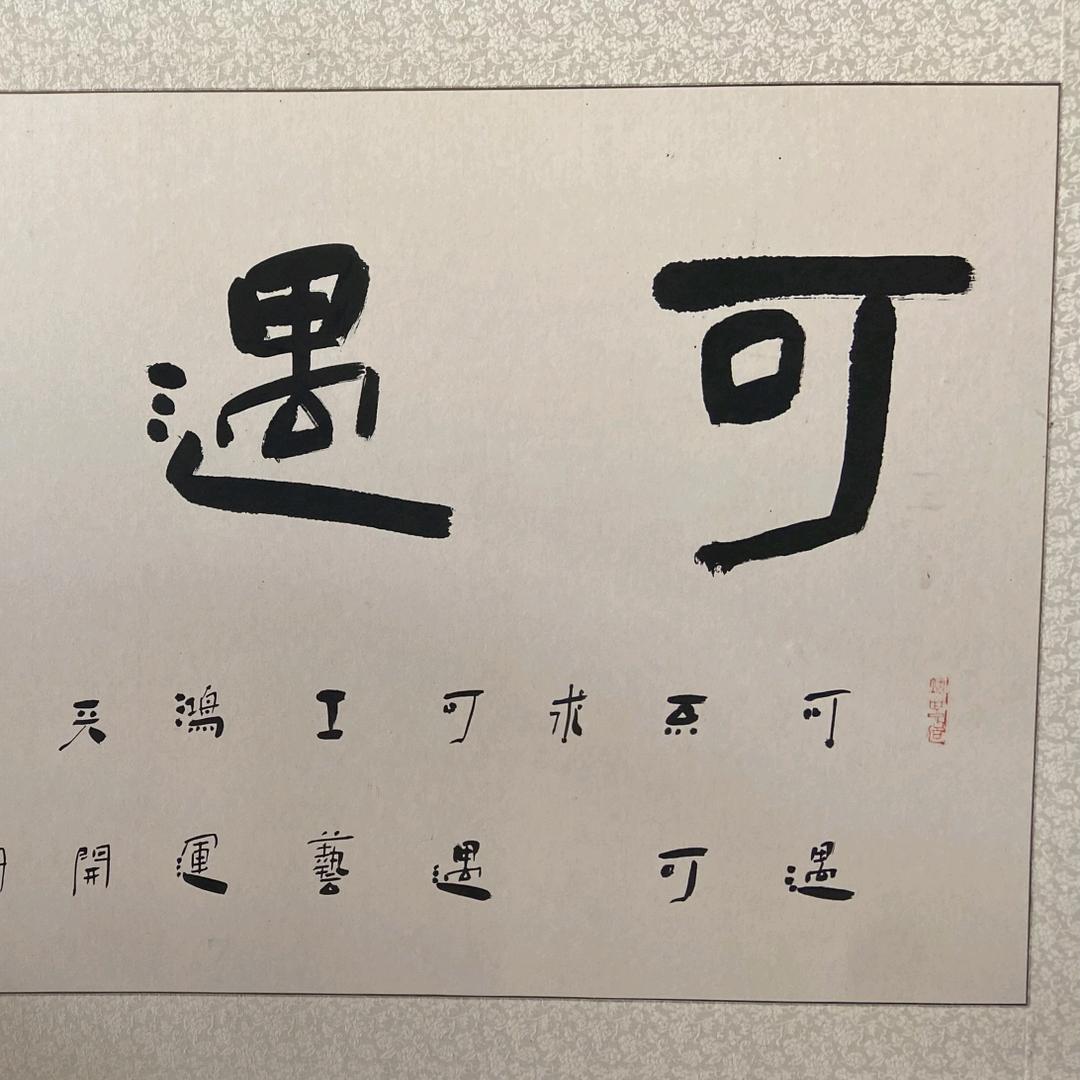 可遇
可遇
不可
求
可遇
工藝
鴻運
天開